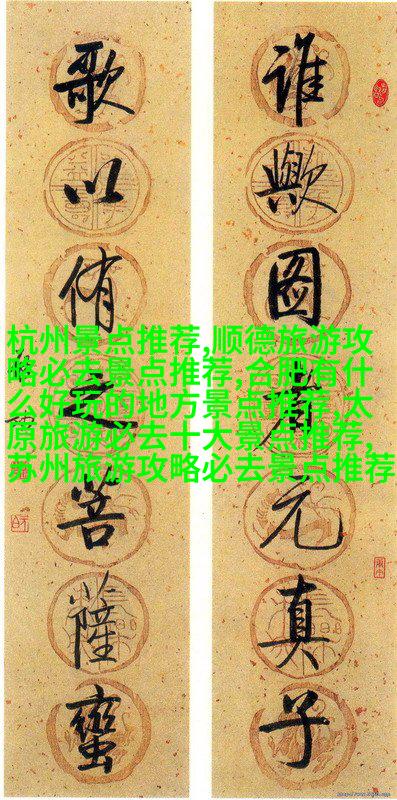 谁歟图者元真子
歌以侑之菩薩蠻
杭州景点推荐,顺德旅游攻
略必去景点推荐,合肥有什
么好玩的地方景点推荐,太
原旅游必去十大景点推荐,
苏州旅游攻略必去景点推荐